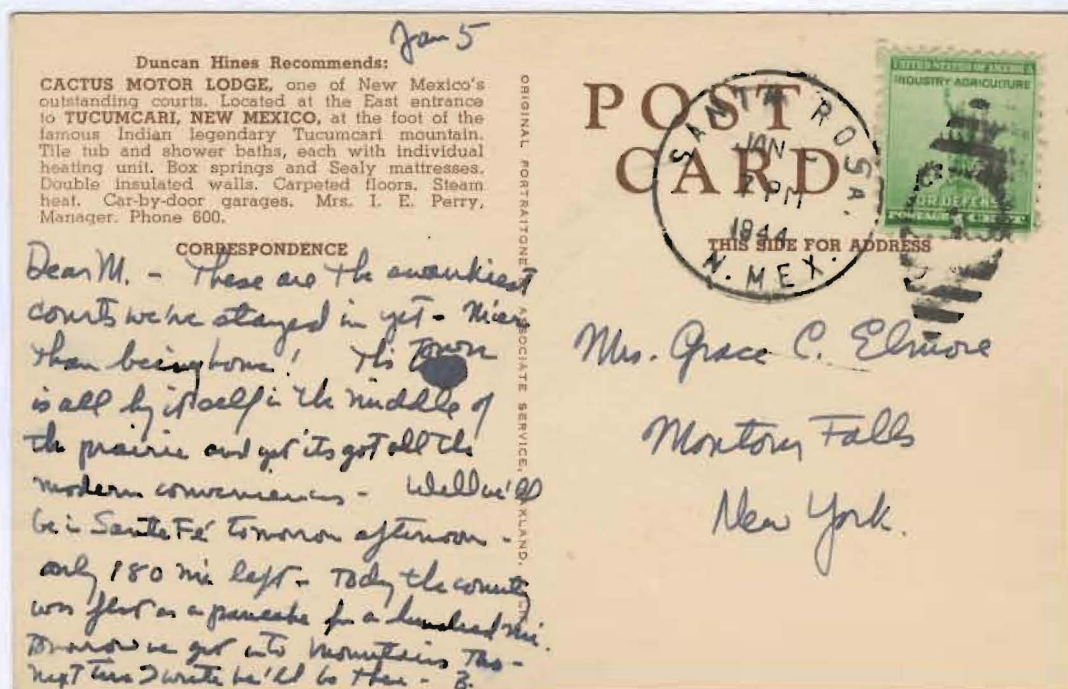 Jan 5
Duncan Hines Recommends:
CACTUS MOTOR LODGE, one of New Mexico's
outstanding courts. Located at the East entrance
to TUCUMCARI, NEW MEXICO, at the foot of the
famous Indian legendary Tucumcari mountain.
Tile tub and shower baths, each with individual
heating unit. Box springs and Sealy mattresses.
Double insulated walls. Carpeted floors. Steam
heat. Car-by-door garages. Mrs. I. E. Perry,
Manager. Phone 600.
CORRESPONDENCE
Dear M. - These are the swankiest
courts we've stayed in yet - Nicer
than being home! This Town
is all by itself in the middle of
the prairie and yet its got all the
modern conveniences - Well we'll
be in Santa Fé tomorrow afternoon -
only 180 mi left - Today the country
was flat as a pancake for a hundred mi.
Tomorrow we get into mountains tho -
next time I write we'll be there - B.
ORIGINAL PORTRAITONE ASSOCIATE SERVICE,
POST
CARD
THIS SIDE FOR ADDRESS
SANTA ROSA.
JAN
2 PM
1944
N. MEX.
UNITED STATES OF AMERICA
INDUSTRY AGRICULTURE
FOR DEFENSE
POSTAGE 1 CENT
Mrs. Grace C. Elmore
Montour Falls
New York.